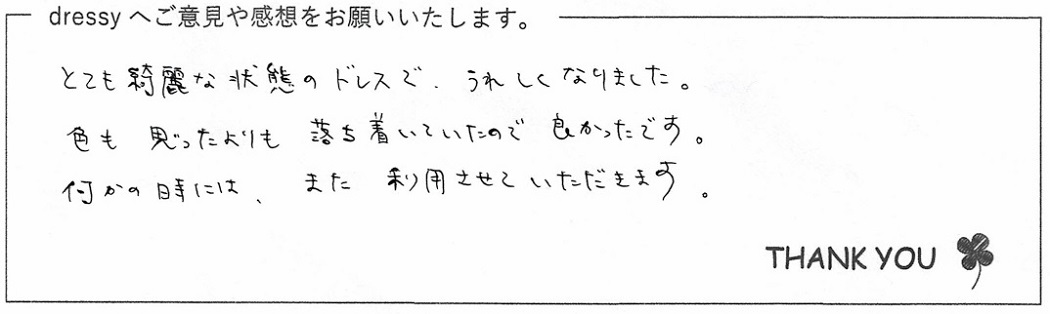 dressy へご意見や感想をお願いいたします。
とても綺麗な状態のドレスで、うれしくなりました。
色も 思ったよりも 落ち着いていたので 良かったです。
何かの時には、また 利用させていただきます。
THANK YOU